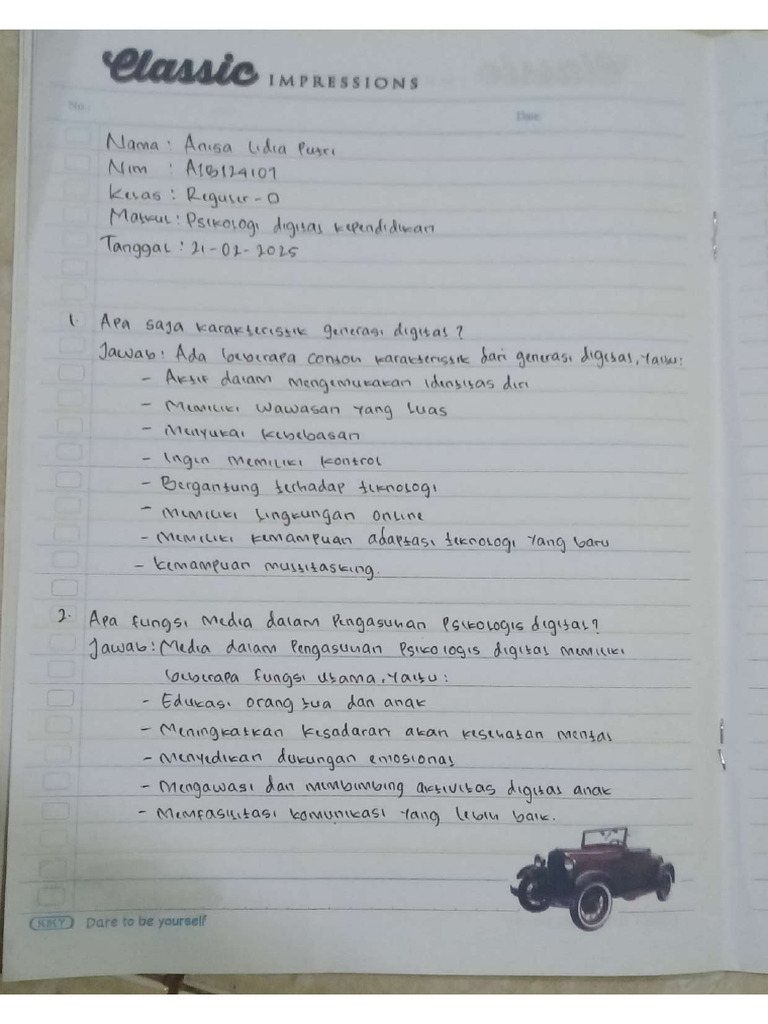 Classic IMPRESSIONS
No.
Date
Nama : Anisa Lidia Putri
Nim : A1B124107
Kelas : Reguler - D
Matkul : Psikologi digital kependidikan
Tanggal : 21-02-2025
1. Apa saja karakteristik generasi digital?
Jawab : Ada beberapa contoh karakteristik dari generasi digital, yaitu:
- Aktif dalam mengemukakan identitas diri
- Memiliki wawasan yang luas
- Menyukai kebebasan
- Ingin memiliki kontrol
- Bergantung terhadap teknologi
- Memiliki lingkungan online
- Memiliki kemampuan adaptasi teknologi yang baru
- kemampuan multitasking.
2. Apa fungsi media dalam Pengasuhan Psikologis digital?
Jawab : Media dalam Pengasuhan Psikologis digital memiliki
beberapa fungsi utama, yaitu :
- Edukasi orang tua dan anak
- Meningkatkan kesadaran akan kesehatan mental
- Menyedikan dukungan emosional
- Mengawasi dan membimbing aktivitas digital anak
- Memfasilitasi komunikasi yang lebih baik.
KKY Dare to be yourself